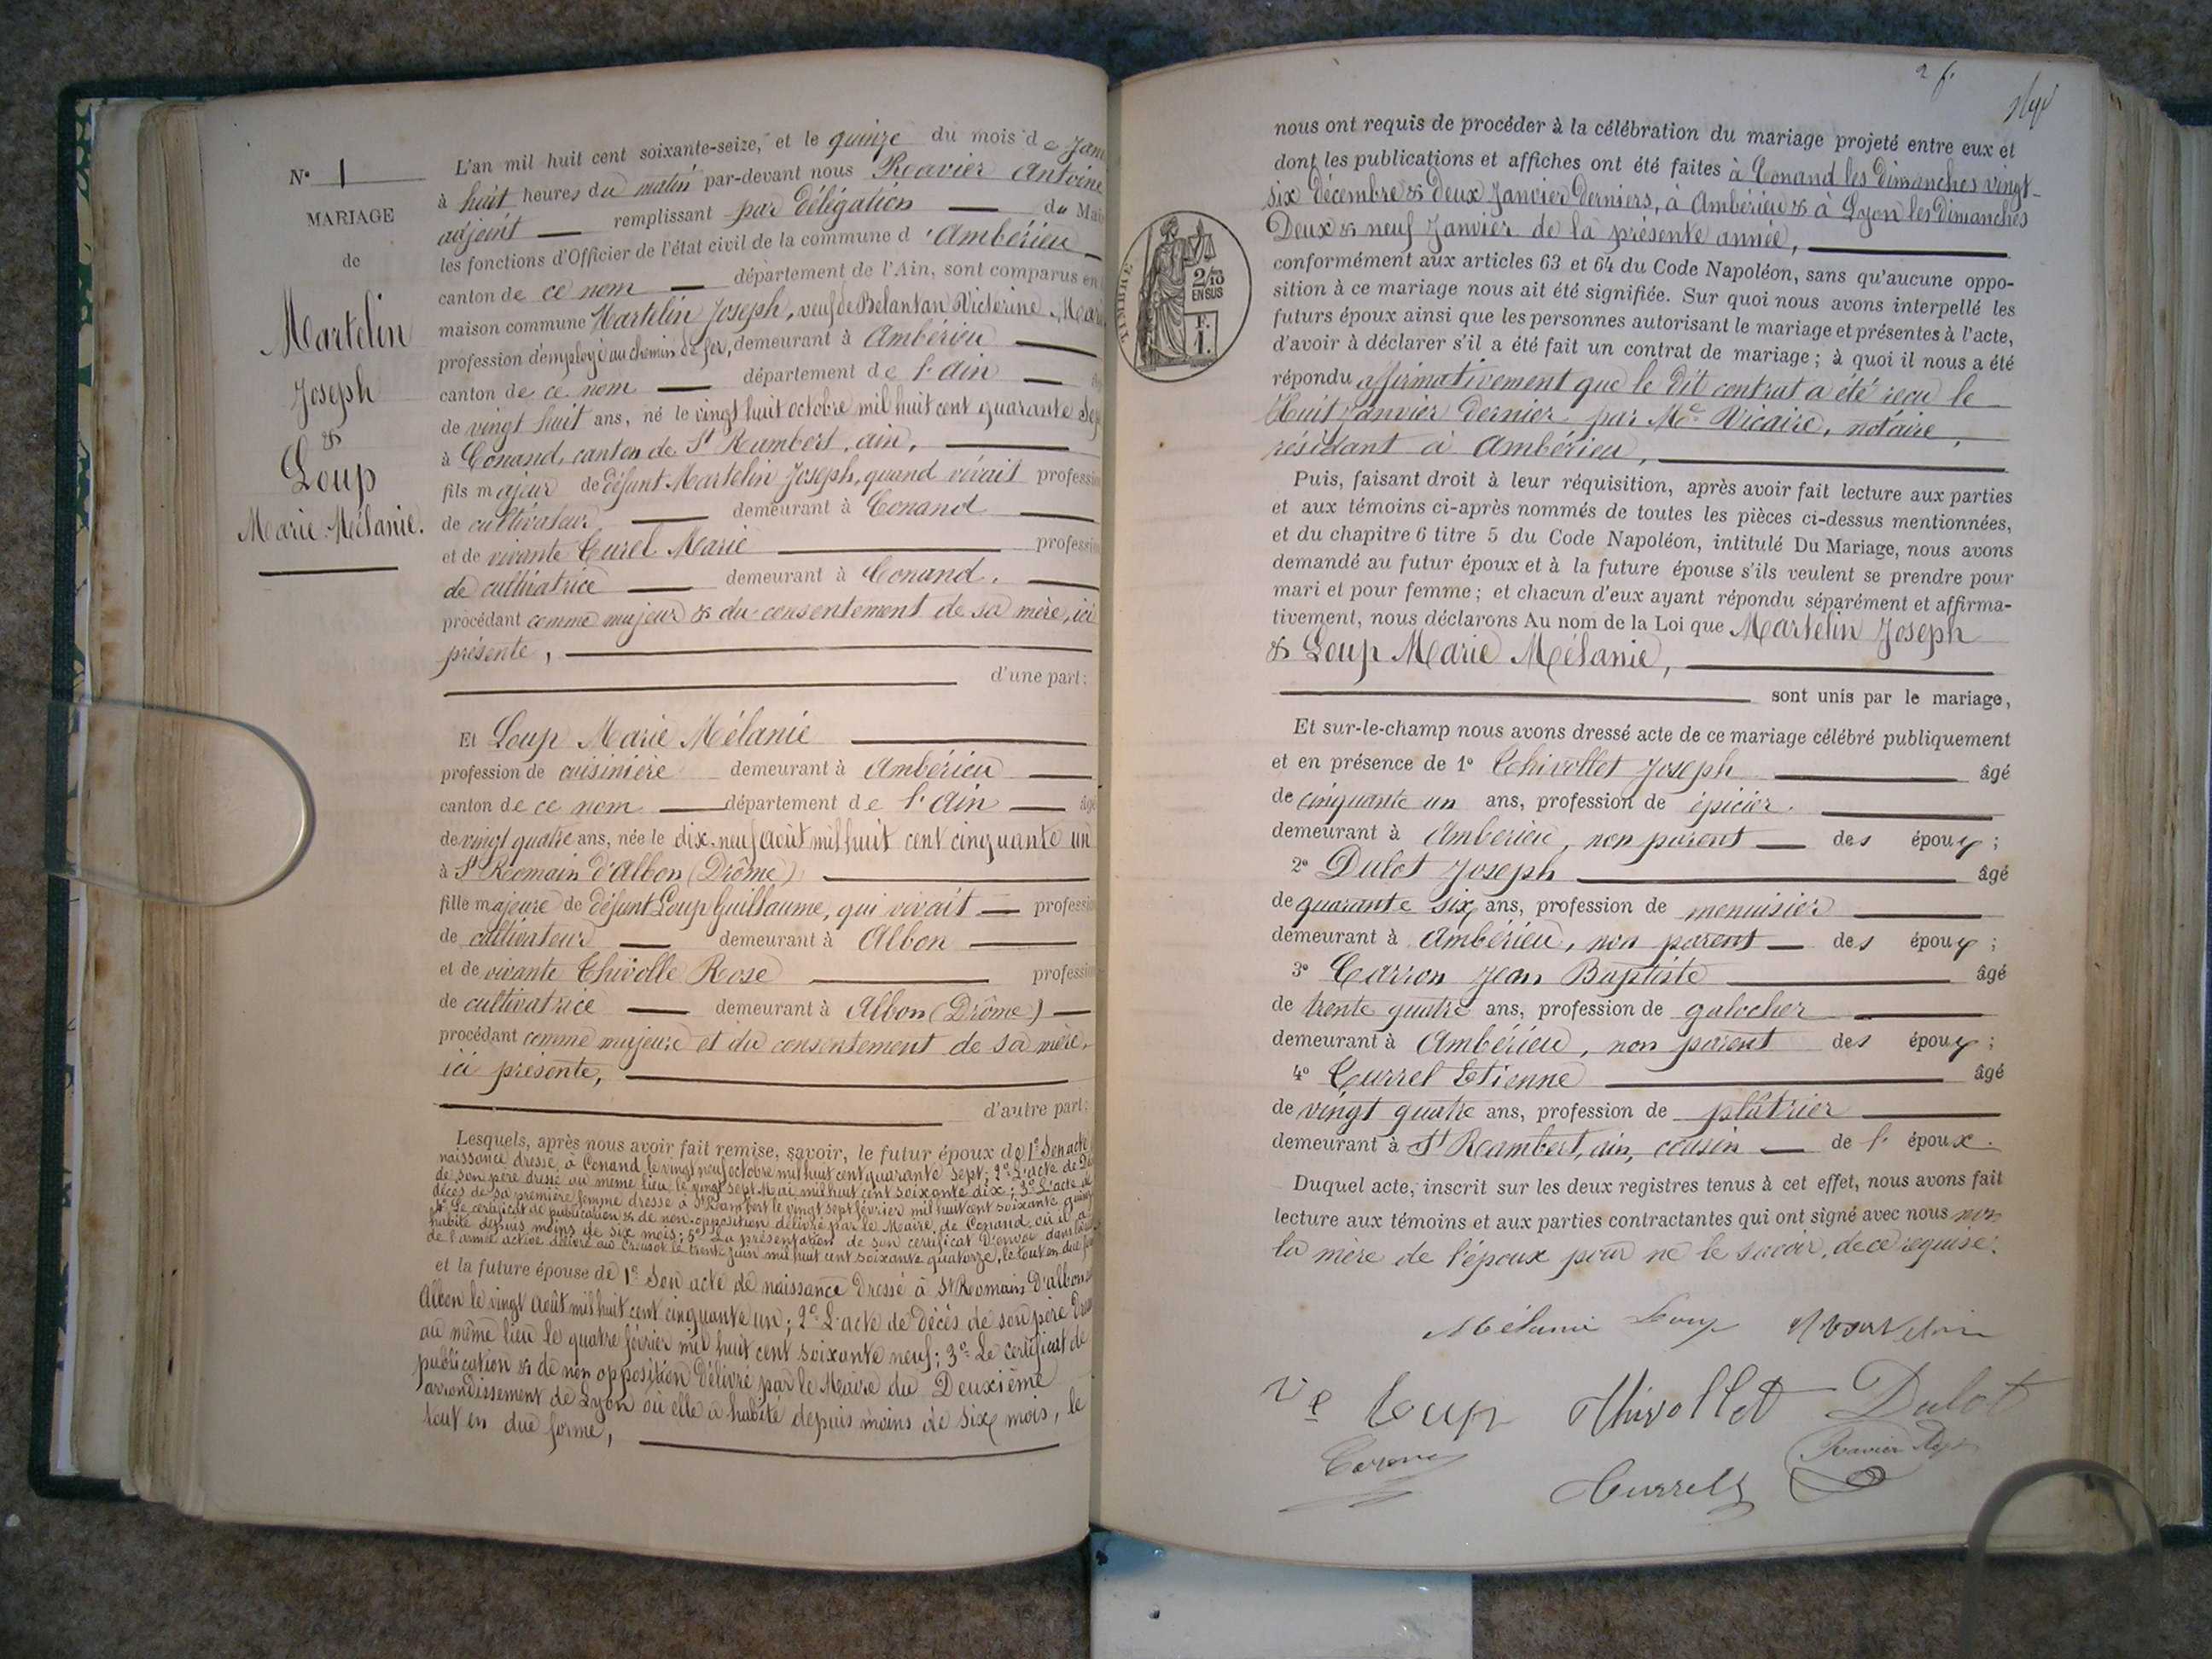 N° 1
MARIAGE
de
Martelin
Joseph
&
Loup
Marie Mélanie.
L'an mil huit cent soixante-seize, et le quinze du mois de Jan
à huit heures du matin par-devant nous Ravier Antoine
adjoint remplissant par délégation du Mai
les fonctions d'Officier de l'état civil de la commune d'Ambérieu
canton de ce nom département de l'Ain, sont comparus en
maison commune Martelin Joseph, veuf de Belantan Victorine Mari
profession d'employé au chemin de fer, demeurant à Ambérieu
canton de ce nom département de l'Ain
de vingt huit ans, né le vingt huit octobre mil huit cent quarante Sep
à Conand, canton de St Rambert, ain,
fils majeur de défunt Martelin Joseph, quand vivait professi
de cultivateur demeurant à Conand
et de vivante Curel Marie professi
de cultivatrice demeurant à Conand.
procédant comme majeur & du consentement de sa mère, ici
présente,
d'une part:
Et Loup Marie Mélanie
profession de cuisinière demeurant à Ambérieu
canton de ce nom département de l'Ain âgé
de vingt quatre ans, née le dix-neuf août mil huit cent cinquante un
à St Romain d'Albon (Drôme)
fille majeure de défunt Loup Guillaume, qui vivait professi
de cultivateur demeurant à Albon
et de vivante Thivolle Rose professi
de cultivatrice demeurant à Albon (Drôme)
procédant comme majeure et du consentement de sa mère,
ici présente,
d'autre part:
Lesquels, après nous avoir fait remise, savoir, le futur époux de 1° Son acte
naissance dressé à Conand le vingt neuf octobre mil huit cent quarante sept; 2° L'acte de Dé
de son père dressé au même lieu le vingt sept Mai mil huit cent soixante dix; 3° L'acte de
décès de sa première femme dressé à St Rambert le vingt sept février mil huit cent soixante quinze
4° Le certificat de publication & de non-opposition délivré par le Maire de Conand où il a
habité depuis moins de six mois; 5° La présentation de son certificat d'envoi dans
de l'armée active délivré au Creusot le trente juin mil huit cent soixante quatorze, le tout en due
et la future épouse de 1° Son acte de naissance dressé à St Romain d'albon
Albon le vingt août mil huit cent cinquante un; 2° L'acte de décès de son père
au même lieu le quatre février mil huit cent soixante neuf; 3° Le certificat de
publication & de non opposition délivré par le Maire du Deuxième
arrondissement de Lyon où elle a habité depuis moins de six mois, le
tout en due forme,
2 f.
TIMBRE
2/10
EN SUS
F.
1.
nous ont requis de procéder à la célébration du mariage projeté entre eux et
dont les publications et affiches ont été faites à Conand les dimanches vingt-
six Décembre & deux Janvier derniers, à Ambérieu & à Lyon les dimanches
Deux & neuf Janvier de la présente année,
conformément aux articles 63 et 64 du Code Napoléon, sans qu'aucune oppo-
sition à ce mariage nous ait été signifiée. Sur quoi nous avons interpellé les
futurs époux ainsi que les personnes autorisant le mariage et présentes à l'acte,
d'avoir à déclarer s'il a été fait un contrat de mariage; à quoi il nous a été
répondu affirmativement que le dit contrat a été reçu le
Huit janvier dernier par Me Vicaire, notaire,
résidant à Ambérieu,
Puis, faisant droit à leur réquisition, après avoir fait lecture aux parties
et aux témoins ci-après nommés de toutes les pièces ci-dessus mentionnées,
et du chapitre 6 titre 5 du Code Napoléon, intitulé Du Mariage, nous avons
demandé au futur époux et à la future épouse s'ils veulent se prendre pour
mari et pour femme; et chacun d'eux ayant répondu séparément et affirma-
tivement, nous déclarons Au nom de la Loi que Martelin Joseph
& Loup Marie Mélanie,
sont unis par le mariage,
Et sur-le-champ nous avons dressé acte de ce mariage célébré publiquement
et en présence de 1° Thivollet Joseph âgé
de cinquante un ans, profession de épicier.
demeurant à Ambérieu, non parent des époux;
2° Dulot Joseph âgé
de quarante six ans, profession de menuisier
demeurant à Ambérieu, non parent des époux;
3° Carron Jean Baptiste âgé
de trente quatre ans, profession de galocher
demeurant à Ambérieu, non parent des époux;
4° Currel Etienne âgé
de vingt quatre ans, profession de plâtrier
demeurant à St Rambert, ain, cousin de l'époux.
Duquel acte, inscrit sur les deux registres tenus à cet effet, nous avons fait
lecture aux témoins et aux parties contractantes qui ont signé avec nous non
la mère de l'époux pour ne le savoir, de ce requise.
Mélanie Loup Martelin
Ve Loup Thivollet Dulot
Carron Ravier
Currel